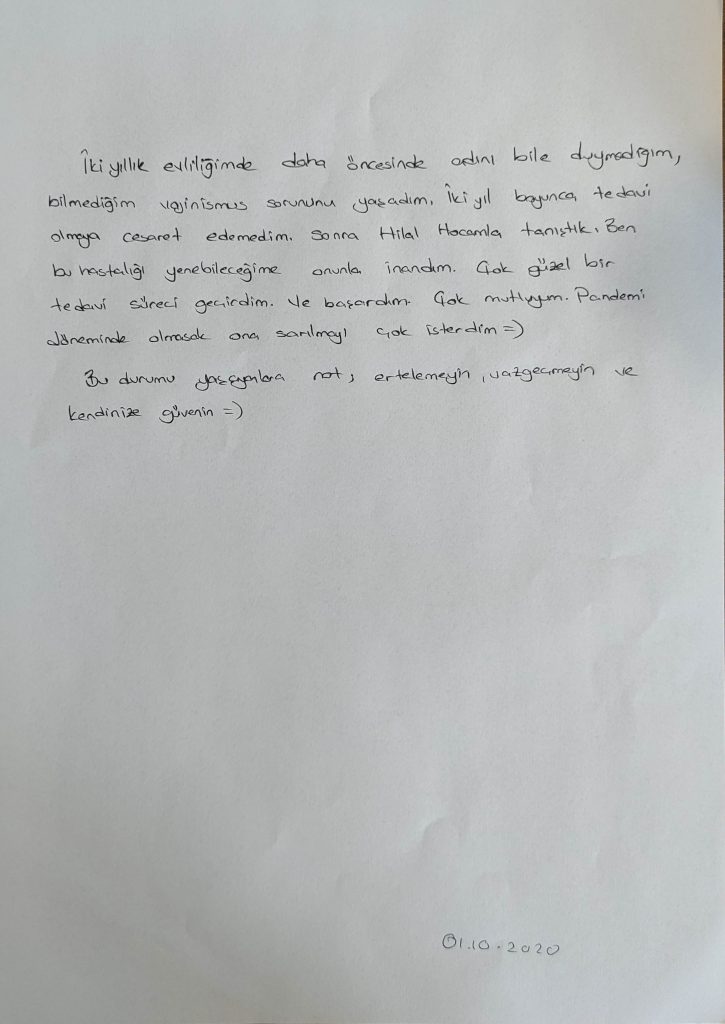 İki yıllık evliliğimde daha öncesinde adını bile duymadığım,
bilmediğim vajinismus sorununu yaşadım. İki yıl boyunca tedavi
olmaya cesaret edemedim. Sonra Hilal Hocamla tanıştık. Ben
bu hastalığı yenebileceğime onunla inandım. Çok güzel bir
tedavi süreci geçirdim. Ve başardım. Çok mutluyum. Pandemi
döneminde olmasak ona sarılmayı çok isterdim =)
Bu durumu yaşayanlara not; ertelemeyin, vazgeçmeyin ve
kendinize güvenin =)
01.10.2020